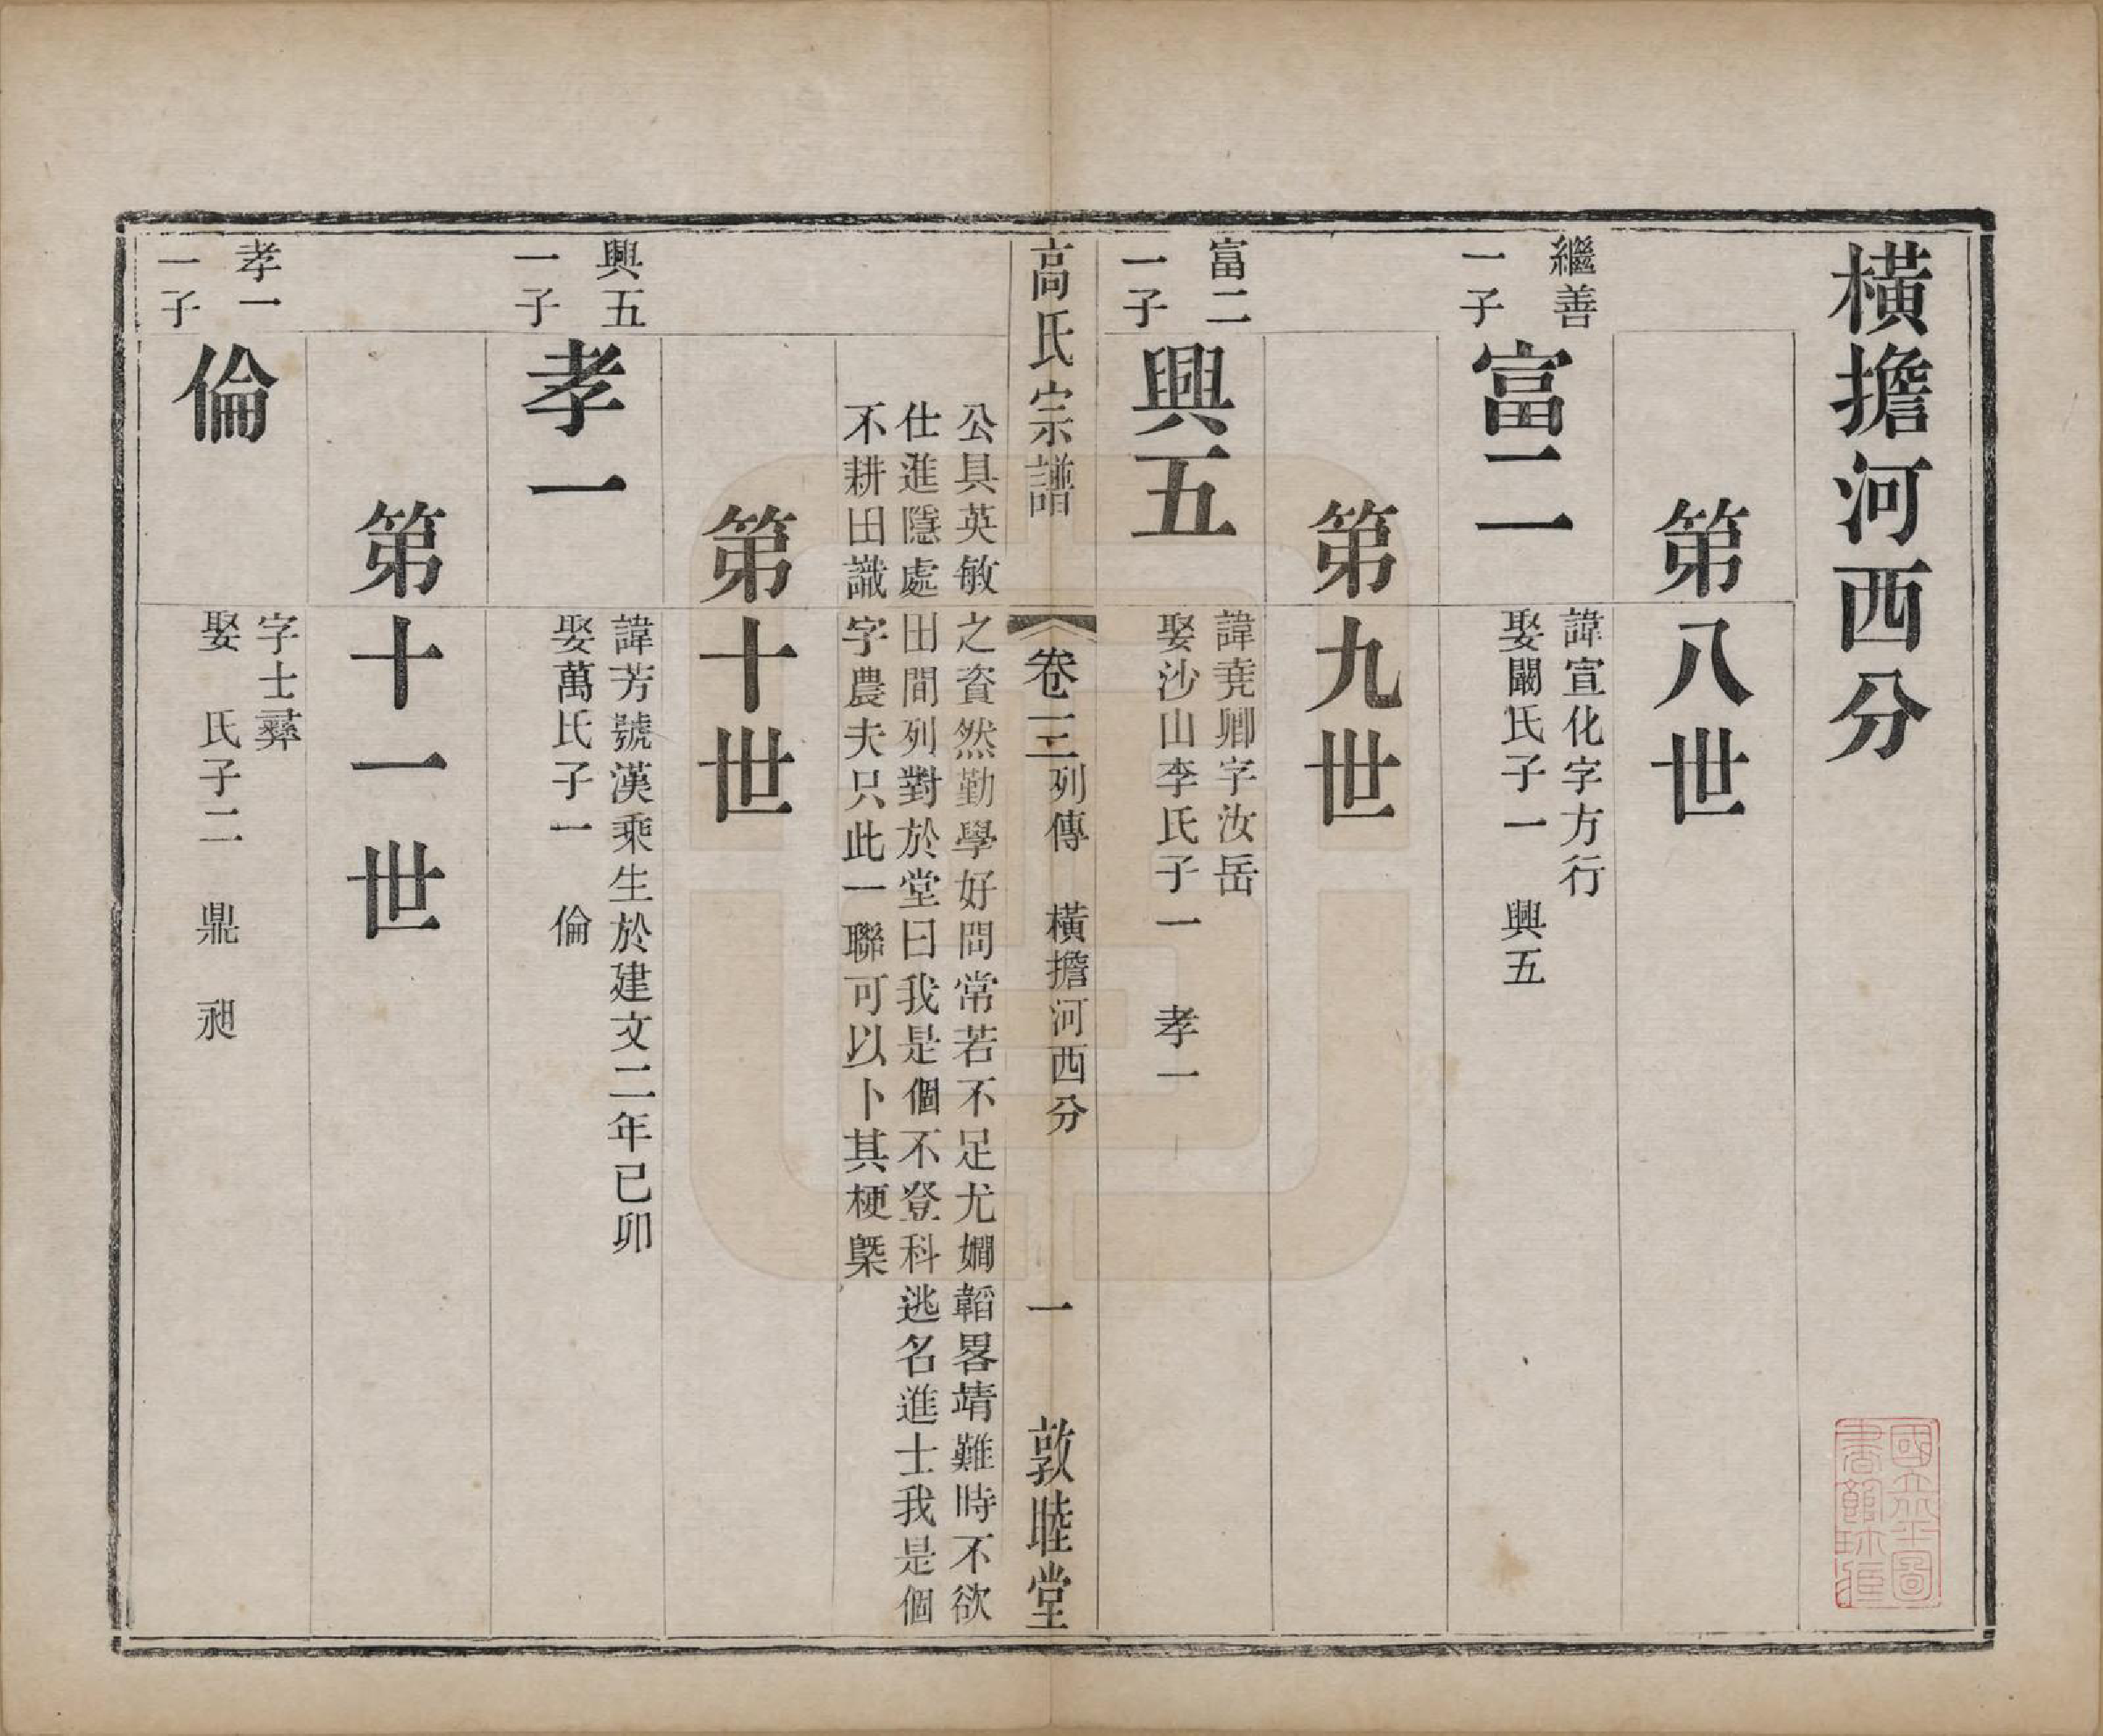 橫擔河西分
第八世
繼善
一子
富二
諱宣化字方行
娶闞氏子一　興五
第九世
富二
一子
興五
諱堯卿字汝岳
娶沙山李氏子一　孝一
高氏宗譜
卷三列傳　橫擔河西分
一
敦睦堂
公具英敏之資然勤學好問常若不足尤嫺韜畧靖難時不欲
仕進隱處田間列對於堂曰我是個不登科逃名進士我是個
不耕田識字農夫只此一聯可以卜其梗槩
第十世
興五
一子
孝一
諱芳號漢乘生於建文二年已卯
娶萬氏子一　倫
第十一世
孝一
一子
倫
字士彞
娶　氏子二　鼎　昶
國立北平圖
書館珍藏